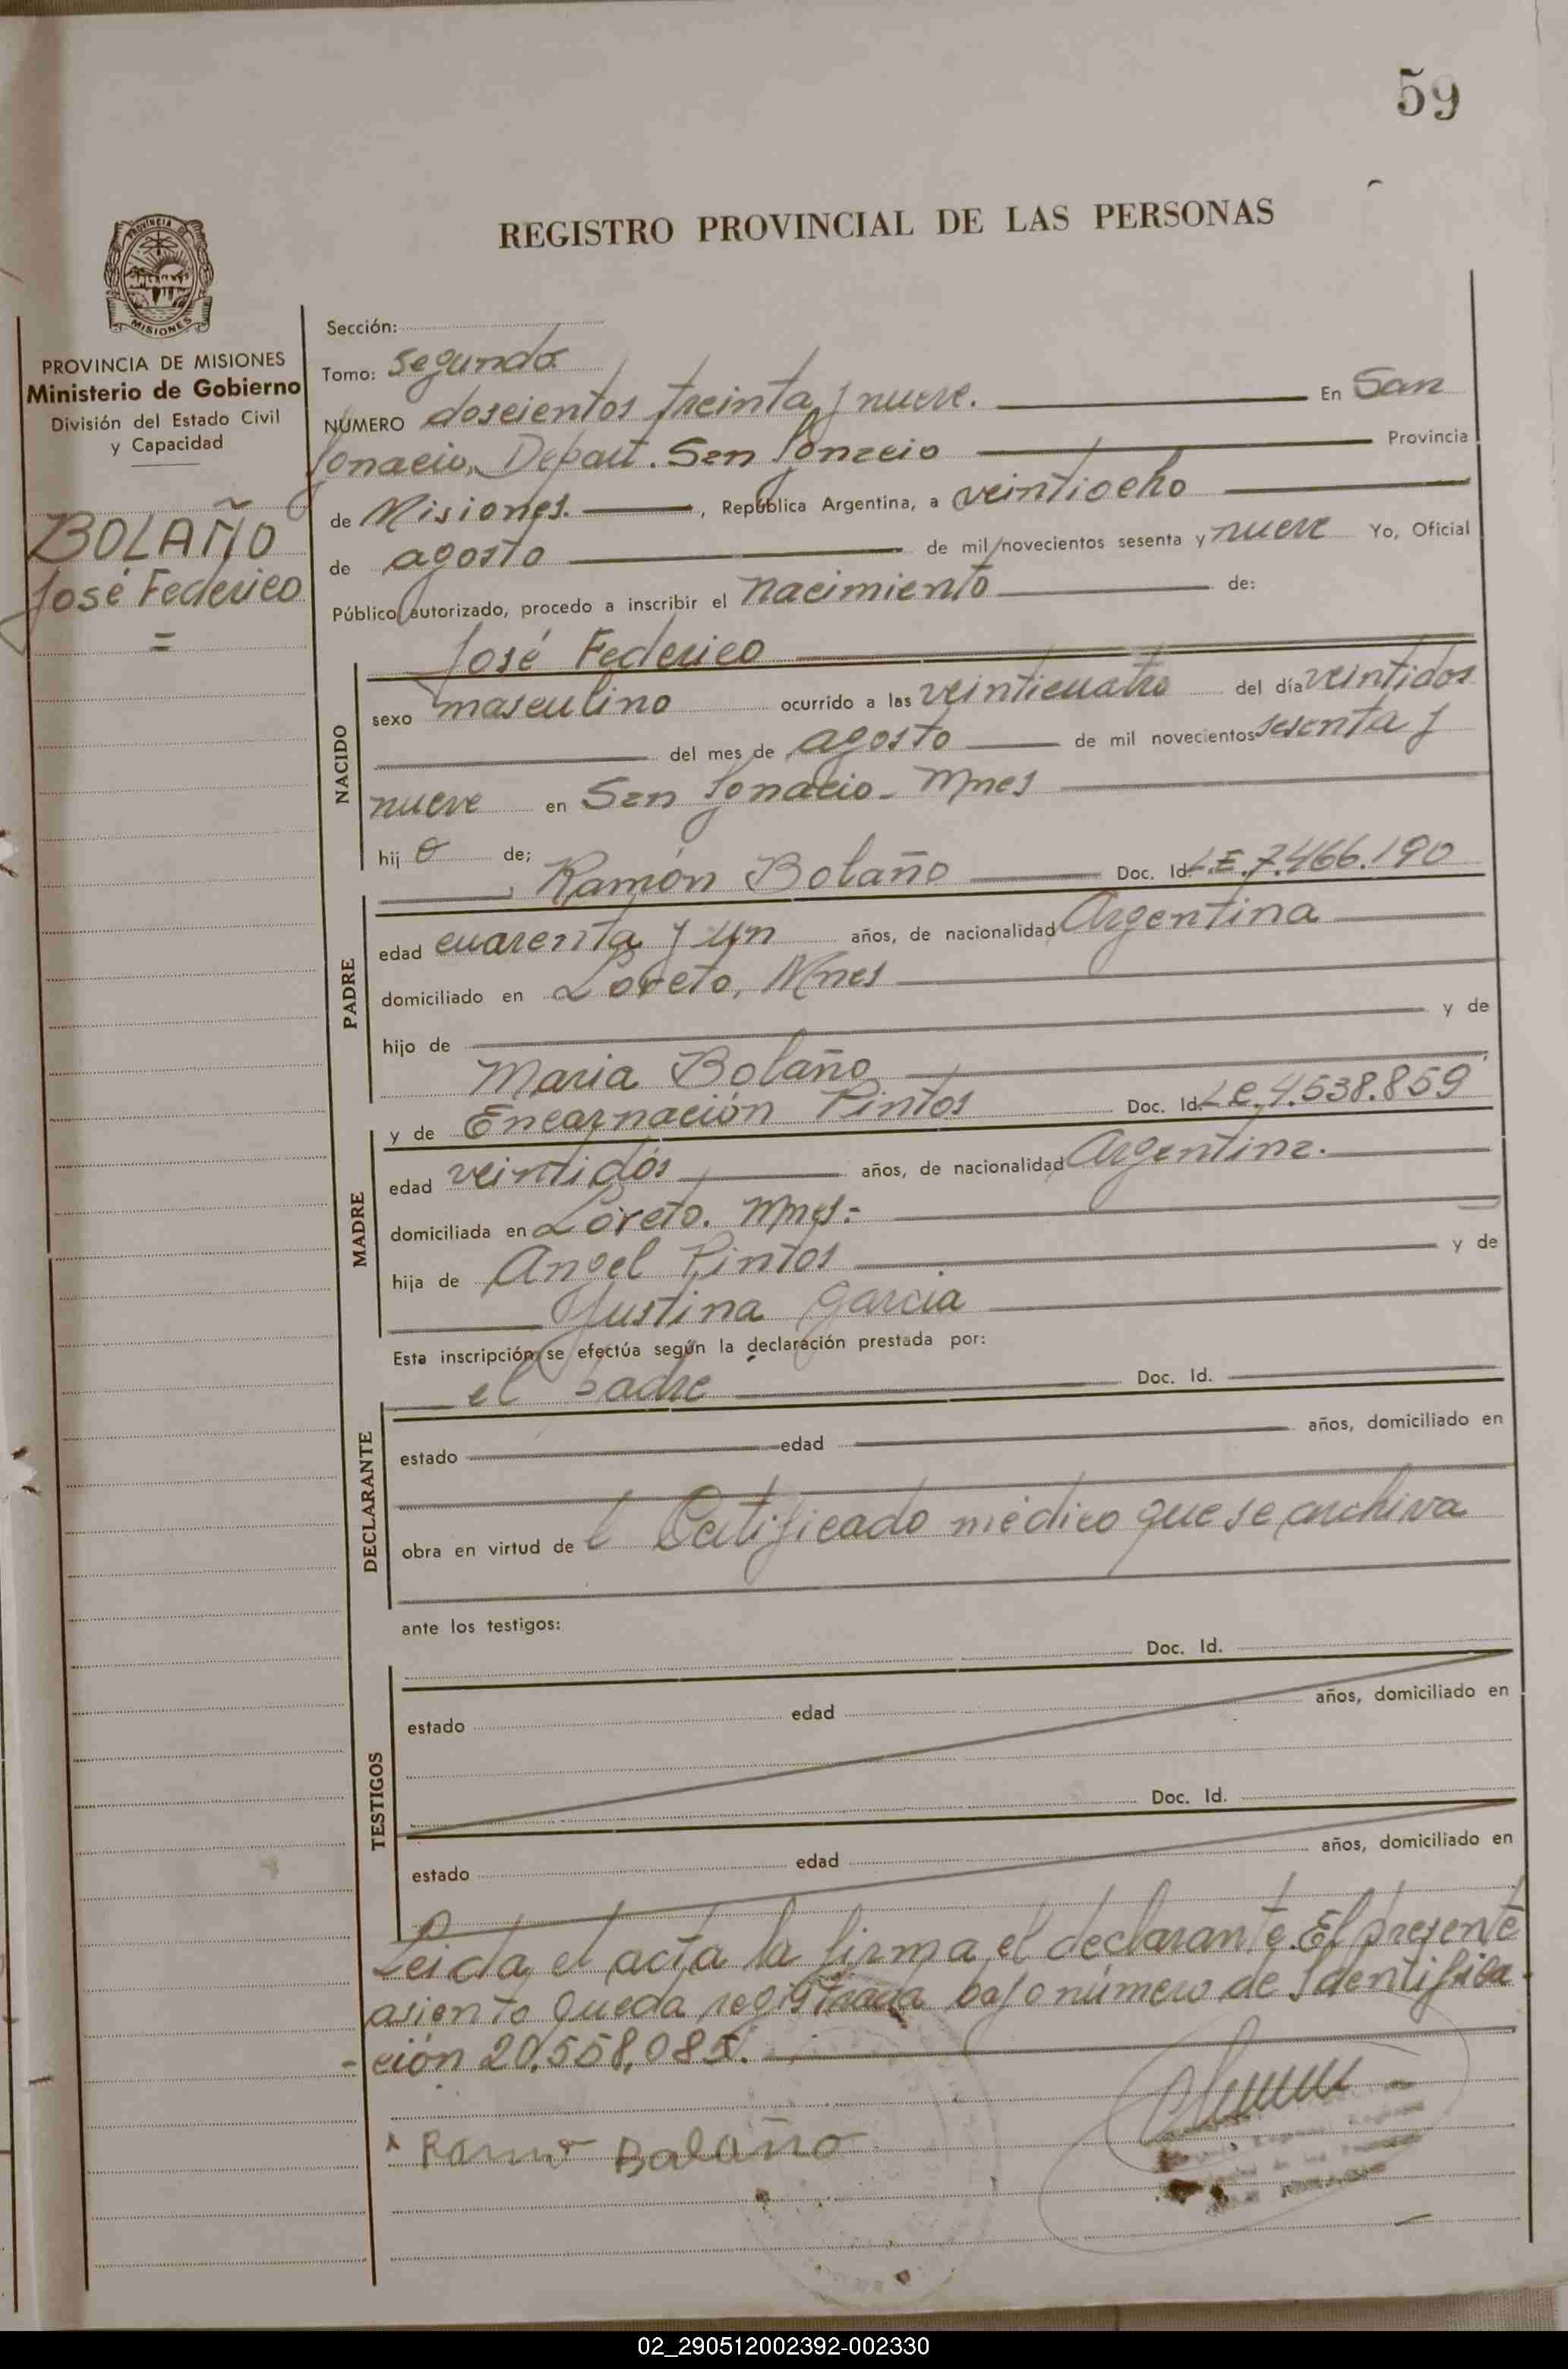 59
REGISTRO PROVINCIAL DE LAS PERSONAS
PROVINCIA DE
MISIONES
PROVINCIA DE MISIONES
Ministerio de Gobierno
División del Estado Civil
y Capacidad
BOLAÑO
José Federico
=
Sección:
Tomo: Segundo
NÚMERO doscientos treinta y nueve. En San
Ignacio, Depart. San Ignacio Provincia
de Misiones. , República Argentina, a veintiocho
de agosto de mil novecientos sesenta y nueve Yo, Oficial
Público autorizado, procedo a inscribir el nacimiento de:
José Federico
NACIDO
sexo masculino ocurrido a las veinticuatro del día veintidos
del mes de agosto de mil novecientos sesenta y
nueve en San Ignacio - Mnes
hij o de;
Ramón Bolaño Doc. Id. L.E. 7.466.190
PADRE
edad cuarenta y un años, de nacionalidad Argentina
domiciliado en Loreto, Mnes
hijo de y de
Maria Bolaño
y de Encarnación Pintos Doc. Id. L.C. 4.538.859
MADRE
edad veintidós años, de nacionalidad Argentina.
domiciliada en Loreto. Mnes.=
hija de Angel Pintos y de
Justina Garcia
Esta inscripción se efectúa según la declaración prestada por:
el padre Doc. Id.
DECLARANTE
estado edad años, domiciliado en
obra en virtud de l Certificado médico que se archiva
ante los testigos:
Doc. Id.
TESTIGOS
estado edad años, domiciliado en
Doc. Id.
estado edad años, domiciliado en
Leida el acta la firma el declarante. El presente
asiento queda registrada bajo número de Identifica
-ción 20.558.085.
Ramon Bolaño
02_290512002392-002330